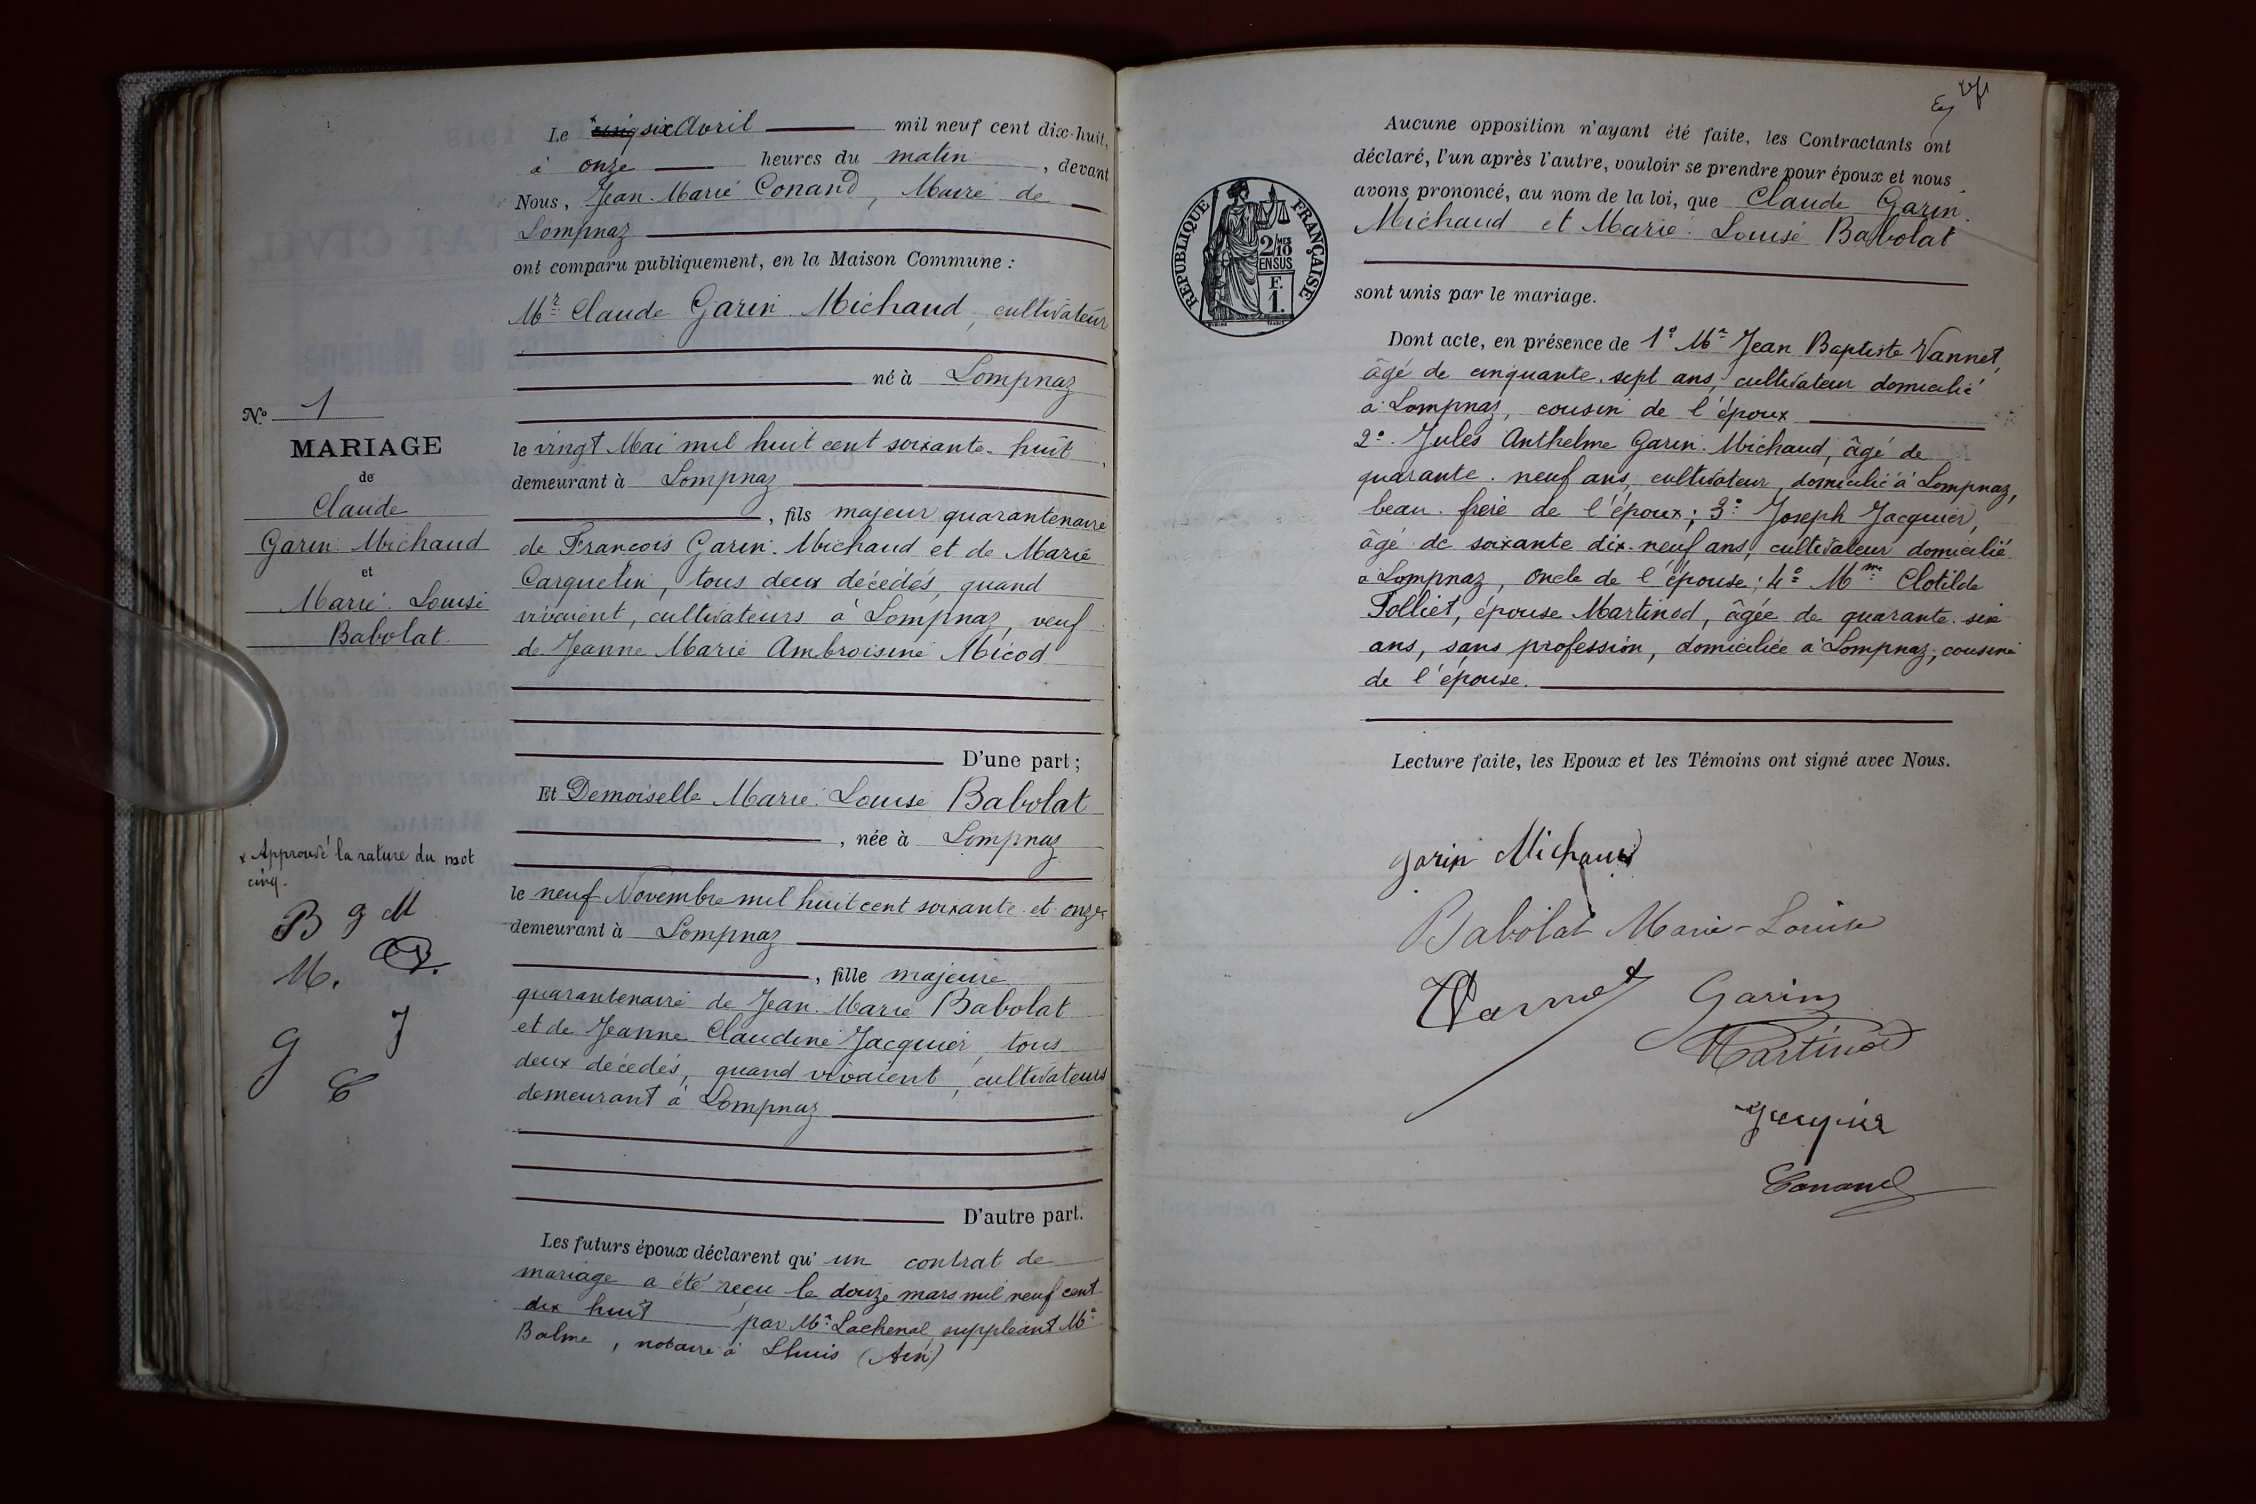 Le cinq six Avril mil neuf cent dix-huit,
à onze heures du matin, devant
Nous, Jean-Marie Conand, Maire de
Lompnaz
ont comparu publiquement, en la Maison Commune :
Mr Claude Garin-Michaud, cultivateur
né à Lompnaz
le vingt Mai mil huit cent soixante-huit,
demeurant à Lompnaz
, fils majeur quarantenaire
de François Garin-Michaud et de Marie
Carquetin, tous deux décédés, quand
vivaient, cultivateurs à Lompnaz, veuf
de Jeanne Marie Ambroisine Micod
D'une part ;
Et Demoiselle Marie-Louise Babolat
, née à Lompnaz
le neuf Novembre mil huit cent soixante-et-onze
demeurant à Lompnaz
, fille majeure
quarantenaire de Jean-Marie Babolat
et de Jeanne Claudine Jacquier, tous
deux décédés, quand vivaient, cultivateurs
demeurant à Lompnaz
D'autre part.
Les futurs époux déclarent qu'un contrat de
mariage a été reçu le douze mars mil neuf cent
dix huit par Me Lachenal, suppléant Me
Balme, notaire à Lhuis (Ain)
No 1
MARIAGE
de
Claude
Garin-Michaud
et
Marie-Louise
Babolat
x Approuvé la rature du mot
cinq.
B G M
M.
G J
C
Aucune opposition n'ayant été faite, les Contractants ont
déclaré, l'un après l'autre, vouloir se prendre pour époux et nous
avons prononcé, au nom de la loi, que Claude Garin-
Michaud et Marie-Louise Babolat
sont unis par le mariage.
RÉPUBLIQUE FRANÇAISE
2/10 MES
EN SUS
F.
1.
Dont acte, en présence de 1° Mr Jean Baptiste Vannet,
âgé de cinquante-sept ans, cultivateur domicilié
à Lompnaz, cousin de l'époux
2° Jules Anthelme Garin-Michaud, âgé de
quarante-neuf ans, cultivateur, domicilié à Lompnaz,
beau-frère de l'époux ; 3° Joseph Jacquier,
âgé de soixante dix-neuf ans, cultivateur domicilié
à Lompnaz, oncle de l'épouse ; 4° Mme Clotilde
Folliet, épouse Martinod, âgée de quarante-six
ans, sans profession, domiciliée à Lompnaz, cousine
de l'épouse.
Lecture faite, les Epoux et les Témoins ont signé avec Nous.
Garin Michaud
Babolat Marie-Louise
Vannet Garin
Martinod
Jacquier
Conand